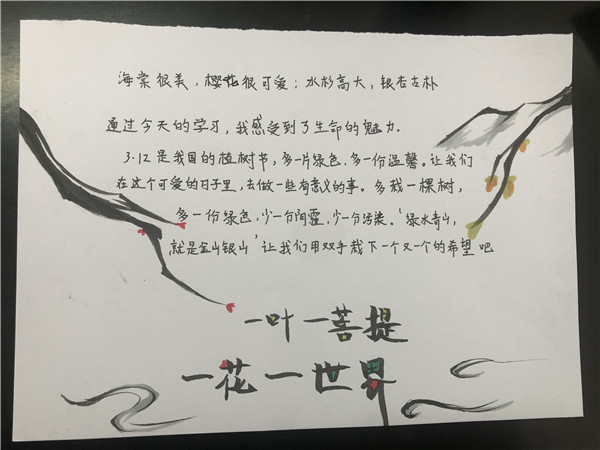 海棠很美，樱花很可爱；水杉高大，银杏古朴
通过今天的学习，我感受到了生命的魅力.
3.12是我国的植树节，多一片绿色，多一份温馨。让我们
在这个可爱的日子里，去做一些有意义的事。多栽一棵树，
多一份绿色，少一分阴霾，少一分污染。‘绿水青山，
就是金山银山’让我们用双手栽下一个又一个的希望吧
一叶一菩提
一花一世界